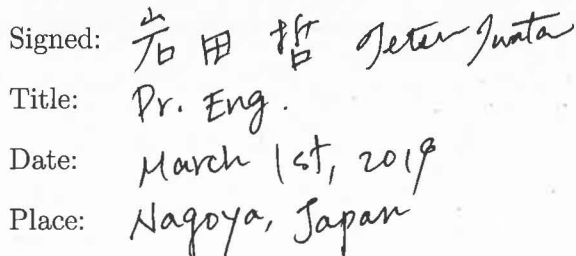 Signed: 岩田 哲 Tetsu Iwata
Title: Dr. Eng.
Date: March 1st, 2019
Place: Nagoya, Japan